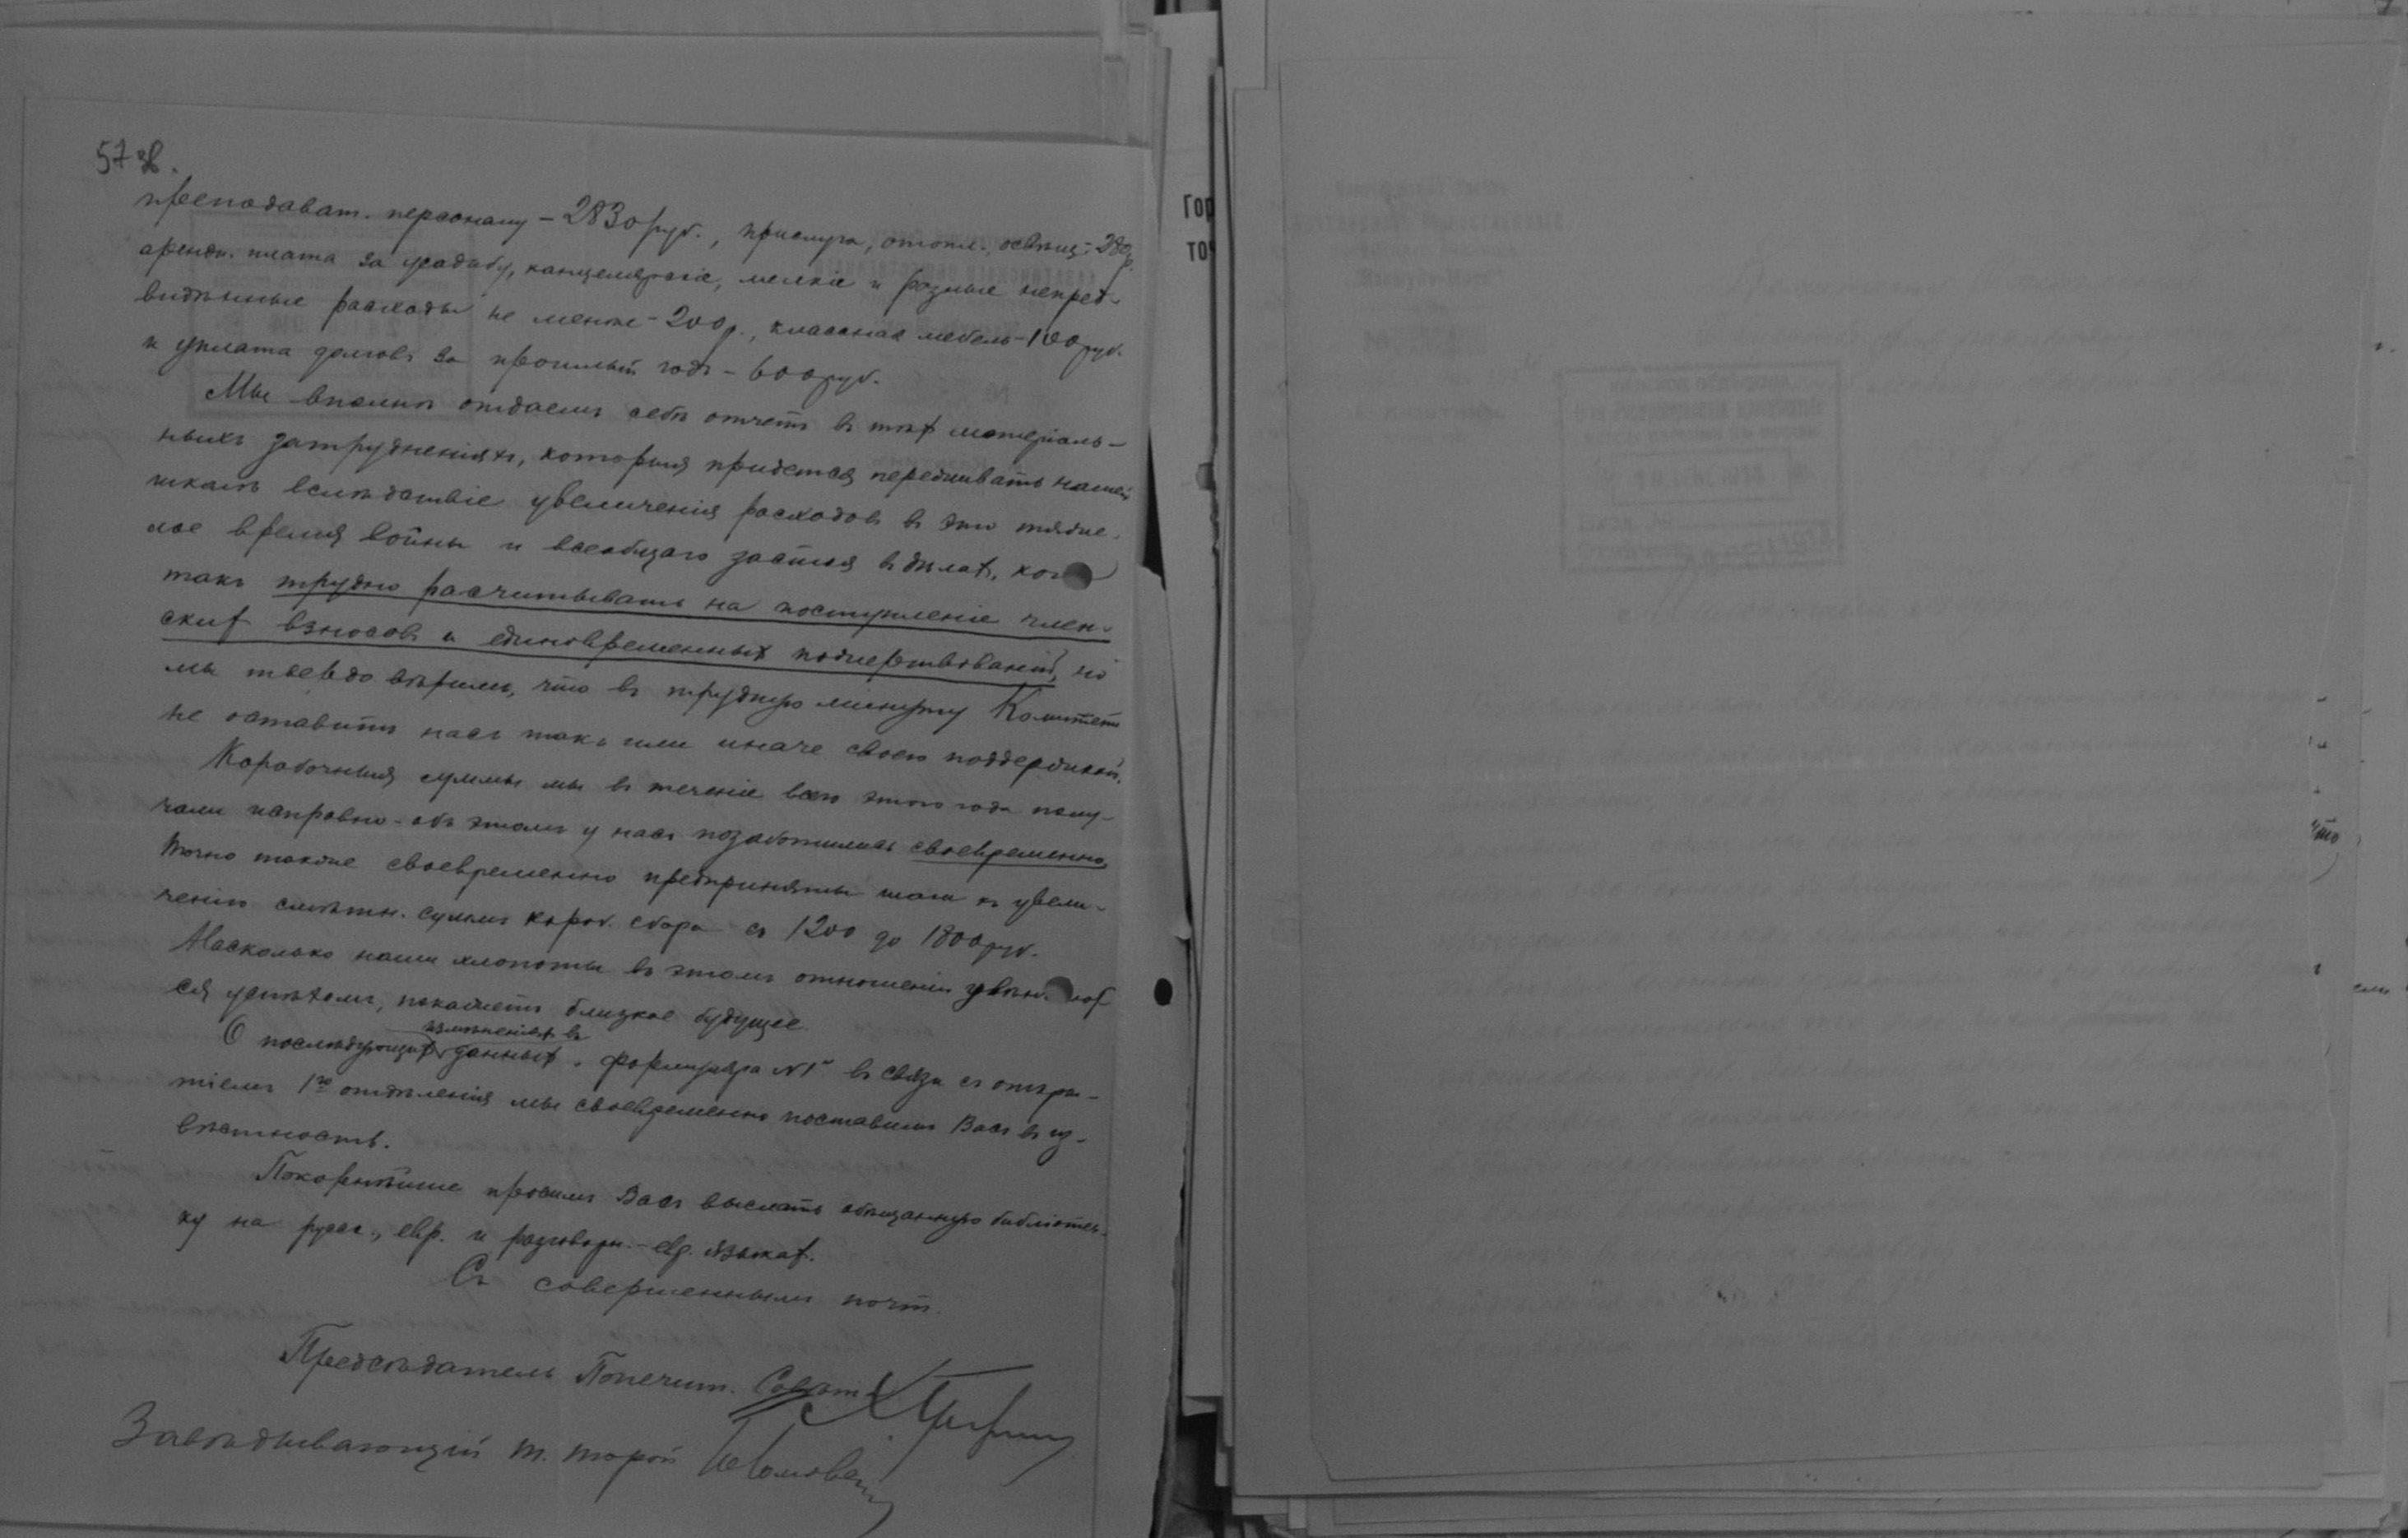 57 об.
преподават. персоналу – 2830 руб., прислуга, отопл., освѣщ. – 280 р.
арендн. плата за усадьбу, канцелярскіе, мелкіе и разные непред-
видѣнные расходы не менѣе – 200 р., классная мебель – 100 руб.
и уплата долговъ за прошлый годъ – 600 руб.
Мы вполнѣ отдаемъ себѣ отчетъ въ тѣх матеріаль-
ныхъ затрудненіяхъ, которыя придется переживать нашей
школѣ вслѣдствіе увеличенія расходовъ въ это тяже-
лое время войны и всеобщаго застоя въ дѣлах,
такъ трудно расчитывать на поступленіе член-
ских взносовъ и единовременных пожертвованій, но
мы твердо вѣримъ, что въ трудную минуту Комитетъ
не оставитъ насъ такъ или иначе своею поддержкой.
Коробочныя суммы мы въ теченіе всего этого года полу-
чали исправно – объ этомъ у насъ позаботились своевременно.
Точно также своевременно предприняты шаги къ увели-
ченію смѣтн. суммы короб. сбора съ 1200 до 1800 руб.
Насколько наши хлопоты въ этомъ отношеніи
ся успѣхомъ, покажетъ близкое будущее.
измѣненіях въ
О послѣдующих данных формуляра №1 въ связи съ откры-
тіемъ 1го отдѣленія мы своевременно поставимъ Васъ въ из-
вѣстность.
Покорнѣйше просимъ Васъ выслать обѣщанную библіотеч-
ку на русск., евр. и разговорн.-евр. языках.
Съ совершеннымъ почт.
Предсѣдатель Попечит. Совѣта
Завѣдывающій т. торой
Гор
точ
что